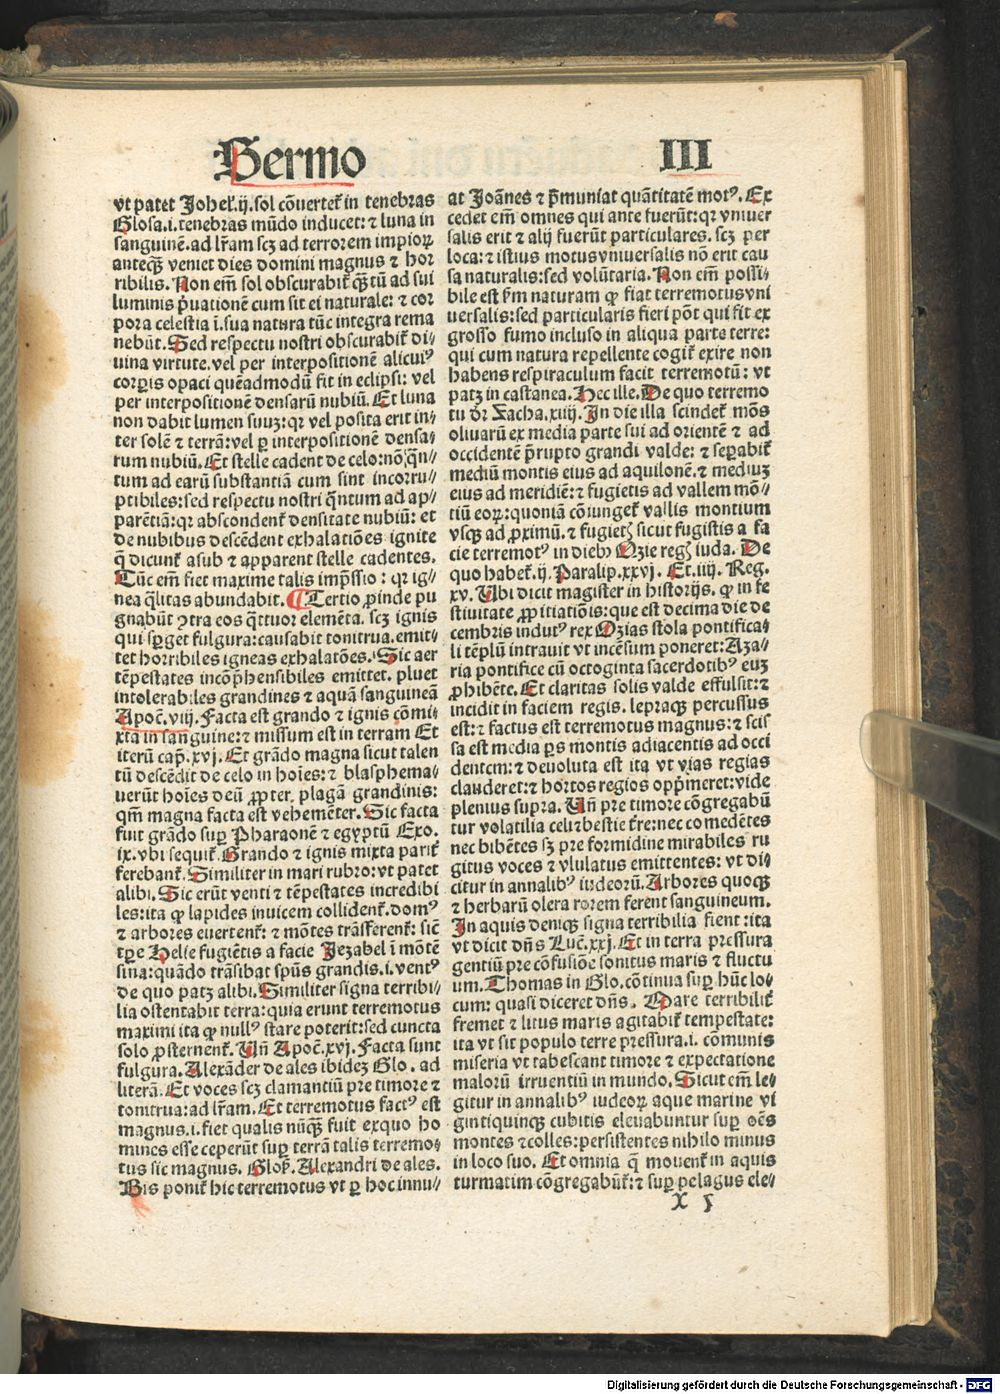 Sermo III
vt patet Johel̃.ij.sol cõuertet̃ in tenebras
Glosa.i.tenebras mũdo inducet: ⁊ luna in
sanguinẽ.ad lr̃am scꝫ ad terrorem impioꝝ
anteqꝫ veniet dies domini magnus ⁊ hor
ribilis. Non em̃ sol obscurabit̃ qꝫtũ ad sui
luminis p̃uationẽ cum sit ei naturale: ⁊ cor
pora celestia ĩ.sua natura tũc integra rema
nebũt. Sed respectu nostri obscurabit̃ di⸗
uina virtute.vel per interpositionẽ alicuiꝰ
corꝑis opaci quẽadmodũ fit in eclipsi: vel
per interpositionẽ densarũ nubiũ. Et luna
non dabit lumen suuꝫ: qꝛ vel posita erit in⸗
ter solẽ ⁊ terrã: vel ꝑ interpositionẽ densa⸗
rum nubiũ. Et stelle cadent de celo: nõ q̃n⸗
tum ad earũ substantiã cum sint incorru⸗
ptibiles: sed respectu nostri q̃ntum ad ap⸗
parẽtiã: qꝛ abscondent̃ densitate nubiũ: et
de nubibus descẽdent exhalatiões ignite
q̃ dicunt̃ asub ⁊ apparent stelle cadentes.
Tũc em̃ fiet maxime talis imp̃ssio: qꝛ ig⸗
nea q̃litas abundabit. ¶ Tertio ꝓinde pu
gnabũt ꝯtra eos q̃ttuor elemẽta. scꝫ ignis
qui sꝑget fulgura: causabit tonitrua. emit⸗
tet horribiles igneas exhalatões. Sic aer
tẽpestates incõp̃hensibiles emittet. pluet
intolerabiles grandines ⁊ aquã sanguineã
Apoc̃.viij. Facta est grando ⁊ ignis cõmi⸗
xta in sanguine: ⁊ missum est in terram Et
iterũ cap̃.xvj. Et grãdo magna sicut talen
tũ descẽdit de celo in hoĩes: ⁊ blasphema⸗
uerũt hoĩes deũ ꝓpter. plagã grandinis:
qm̃ magna facta est vehemẽter. Sic facta
fuit grãdo suꝑ Pharaonẽ ⁊ egyptũ Exo.
ix. vbi sequit̃. Grando ⁊ ignis mixta parit̃
ferebant̃. Similiter in mari rubro: vt patet
alibi. Sic erũt venti ⁊ tẽpestates incredibi
les: ita ꝙ lapides inuicem collident̃. domꝰ
⁊ arbores euertent̃: ⁊ mõtes trãsferent̃: sic̃
tꝑe Helie fugiẽtis a facie Jezabel ĩ mõtẽ
sina: quãdo trãsibat sp̃us grandis.i. ventꝰ
de quo patꝫ alibi. Similiter signa terribi⸗
lia ostentabit terra: quia erunt terremotus
maximi ita ꝙ nullꝰ stare poterit: sed cuncta
solo ꝓsternent̃. Vñ Apoc̃.xvj. Facta sunt
fulgura. Alexãder de ales ibideꝫ Glo. ad
literã. Et voces scꝫ clamantiũ pre timore ⁊
tonitrua: ad lr̃am. Et terremotus factꝰ est
magnus.i. fiet qualis nũqꝫ fuit exquo ho
mines esse ceperũt suꝑ terrã talis terremo⸗
tus sic magnus. Glos̃. Alexandri de ales.
Bis ponit̃ hic terremotus vt ꝑ hoc innu⸗
at Joãnes ⁊ p̃muniat quãtitatẽ motꝰ. Ex
cedet em̃ omnes qui ante fuerũt: qꝛ vniuer
salis erit ⁊ alij fuerũt particulares. scꝫ per
loca: ⁊ istius motus vniuersalis nõ erit cau
sa naturalis: sed volũtaria. Non em̃ possi⸗
bile est ẜm naturam ꝙ fiat terremotus vni
uersalis: sed particularis fieri põt qui fit ex
grosso fumo incluso in aliqua parte terre:
qui cum natura repellente cogit̃ exire non
habens respiraculum facit terremotũ: vt
patꝫ in castanea. Hec ille. De quo terremo
tu dr̃ Zacha.xiiij. In die illa scindet̃ mõs
oliuarũ ex media parte sui ad orientẽ ⁊ ad
occidentẽ p̃rupto grandi valde: ⁊ seꝑabit̃
mediũ montis eius ad aquilonẽ. ⁊ mediuꝫ
eius ad meridiẽ: ⁊ fugietis ad vallem mõ⸗
tiũ eoꝝ: quoniã cõiunget̃ vallis montium
vsqꝫ ad ꝓximũ. ⁊ fugietꝭ sicut fugistis a fa
cie terremotꝰ in diebꝫ Ozie regꝭ iuda. De
quo habet̃.ij. Paralip.xxvj. Et.iiij. Reg.
xv. Vbi dicit magister in historijs. ꝙ in fe
stiuitate ꝓpitiatiõis: que est decima die de
cembris indutꝰ rex Ozias stola pontifica⸗
li tẽplũ intrauit vt incẽsum poneret: Aza⸗
ria pontifice cũ octoginta sacerdotibꝰ euꝫ
ꝓhibẽte. Et claritas solis valde effulsit: ⁊
incidit in faciem regis. lepraqꝫ percussus
est: ⁊ factus est terremotus magnus: ⁊ scis
sa est media ꝑs montis adiacentis ad occi
dentem: ⁊ deuoluta est ita vt vias regias
clauderet: ⁊ hortos regios opp̃meret: vide
plenius supra. Vñ pre timore cõgregabũ
tur volatilia celi ⁊ bestie tr̃e: nec comedẽtes
nec bibẽtes sꝫ pre formidine mirabiles ru
gitus voces ⁊ vlulatus emittentes: vt di⸗
citur in annalibꝰ iudeorũ. Arbores quoqꝫ
⁊ herbarũ olera rorem ferent sanguineum.
In aquis deniqꝫ signa terribilia fient: ita
vt dicit dñs Luc̃.xxj. Et in terra pressura
gentiũ pre cõfusiõe sonitus maris ⁊ fluctu
um. Thomas in Glo. cõtinua suꝑ hũc lo⸗
cum: quasi diceret dñs. Mare terribilit̃
fremet ⁊ litus maris agitabit̃ tempestate:
ita vt sit populo terre pressura.i. comunis
miseria vt tabescant timore ⁊ expectatione
malorũ irruentiũ in mundo. Sicut em̃ le⸗
gitur in annalibꝰ iudeoꝝ aque marine vi
gintiquinqꝫ cubitis eleuabuntur suꝑ oẽs
montes ⁊ colles: persistentes nihilo minus
in loco suo. Et omnia q̃ mouent̃ in aquis
turmatim cõgregabũt̃: ⁊ suꝑ pelagus ele⸗
X 5
Digitalisierung gefördert durch die Deutsche Forschungsgemeinschaft - DFG